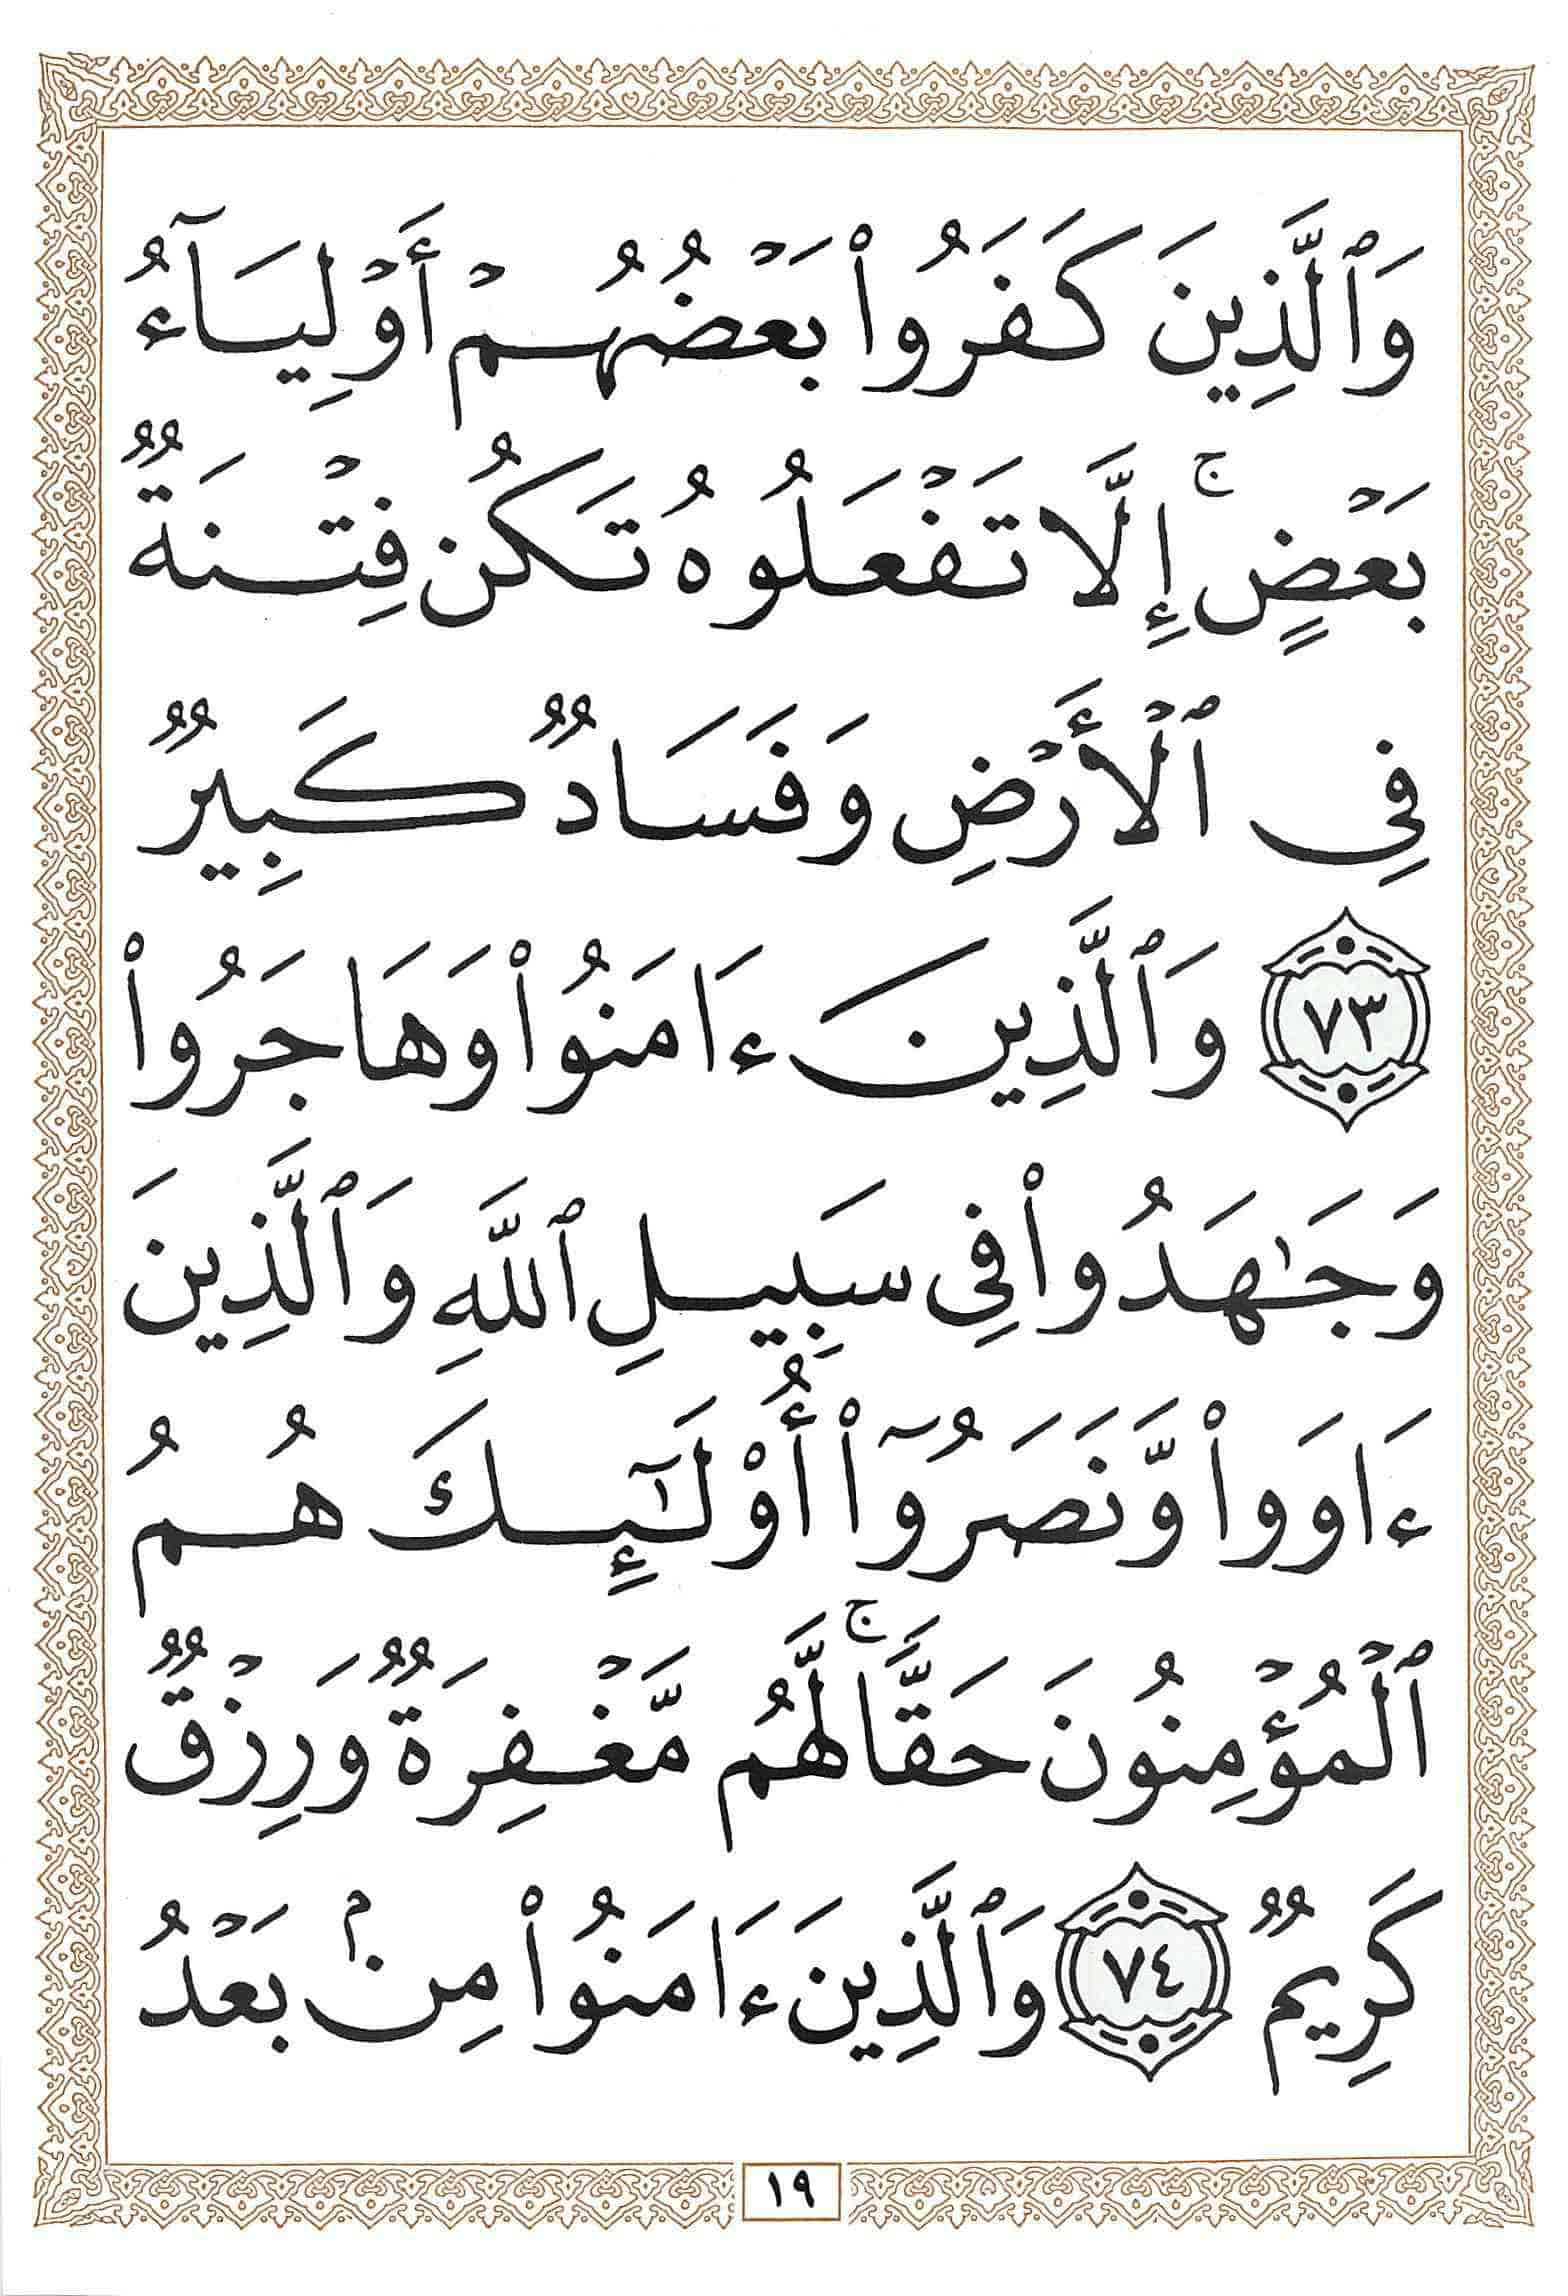 وَٱلَّذِينَ كَفَرُواْ بَعۡضُهُمۡ أَوۡلِيَآءُ
بَعۡضٍۚ إِلَّا تَفۡعَلُوهُ تَكُن فِتۡنَةٞ
فِي ٱلۡأَرۡضِ وَفَسَادٞ كَبِيرٞ
٧٣ وَٱلَّذِينَ ءَامَنُواْ وَهَاجَرُواْ
وَجَٰهَدُواْ فِي سَبِيلِ ٱللَّهِ وَٱلَّذِينَ
ءَاوَواْ وَّنَصَرُوٓاْ أُوْلَٰٓئِكَ هُمُ
ٱلۡمُؤۡمِنُونَ حَقّٗاۚ لَّهُم مَّغۡفِرَةٞ وَرِزۡقٞ
كَرِيمٞ ٧٤ وَٱلَّذِينَ ءَامَنُواْ مِنۢ بَعۡدُ
١٩